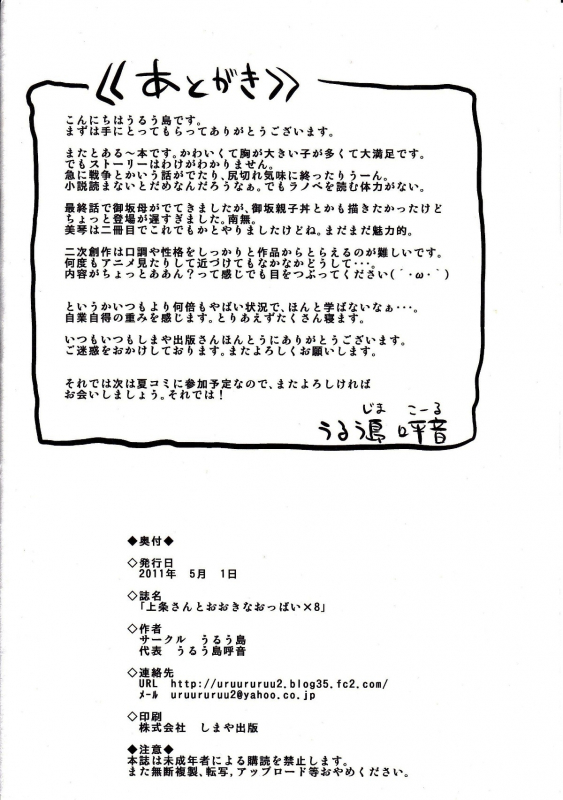 ≪あとがき≫
こんにちはうるう島です。
まずは手にとってもらってありがとうございます。
またとある～本です。かわいくて胸が大きい子が多くて大満足です。
でもストーリーはわけがわかりません。
急に戦争とかいう話がでたり、尻切れ気味に終ったりうーん。
小説読まないとだめなんだろうなぁ。でもラノベを読む体力がない。
最終話で御坂母がでてきましたが、御坂親子丼とかも描きたかったけど
ちょっと登場が遅すぎました。南無。
美琴は二冊目でこれでもかとやりましたけどね。まだまだ魅力的。
二次創作は口調や性格をしっかりと作品からとらえるのが難しいです。
何度もアニメ見たりして近づけてもなかなかどうして･･･。
内容がちょっとああん？って感じでも目をつぶってください(´･ω･｀)
というかいつもより何倍もやばい状況で、ほんと学ばないなぁ･･･。
自業自得の重みを感じます。とりあえずたくさん寝ます。
いつもいつもしまや出版さんほんとうにありがとうございます。
ご迷惑をおかけしております。またよろしくお願いします。
それでは次は夏コミに参加予定なので、またよろしければ
お会いしましょう。それでは！
じま こーる
うるう島 呼音
◆奥付◆
◇発行日
2011年 5月 1日
◇誌名
「上条さんとおおきなおっぱい×8」
◇作者
サークル うるう島
代表 うるう島呼音
◇連絡先
URL http://uruururuu2.blog35.fc2.com/
ﾒｰﾙ uruururuu2@yahoo.co.jp
◇印刷
株式会社 しまや出版
◆注意◆
本誌は未成年者による購読を禁止します。
また無断複製、転写,アップロード等おやめください。